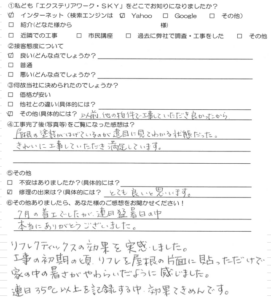 ①私ども「エクステリアワーク・SKY」をどこでお知りになりましたか?
☑ インターネット（検索エンジンは ☑ Yahoo □ Google □ その他）
□ 紹介(どなた様から 様)
□ 近隣での工事 □ 市民講座 □ 過去に弊社で調査・工事をした □ その他
②接客態度について
☑ 良い(どんな点でしょうか?
□ 普通
□ 悪い(どんな点でしょうか?
③何故当社に決められたのですか?
□ 価格が安い
□ 他社との違い(具体的には?
☑ その他(具体的には? 以前、他の物件で工事していただき良かったから
④工事完了後(写真等)をご覧になった感想は?
屋根の塗装がはげているのが遠目に見てわかる状態だった。
きれいに工事していただき満足しています。
⑤その他
□ 不安はありましたか?(具体的には?
☑ 修理の出来は?(具体的には? とても良いと思います。
⑥その他ありましたら、あなた様のご感想をお聞かせください!
7月の着工でしたが、連日猛暑日の中
本当にありがとうございました。
リフレクティックスの効果を実感しました。
工事の初期の頃、リフレを屋根の片面に貼っただけで
家の中の暑さがやわらいだように感じました。
連日35℃以上を記録する中、効果てきめんです。